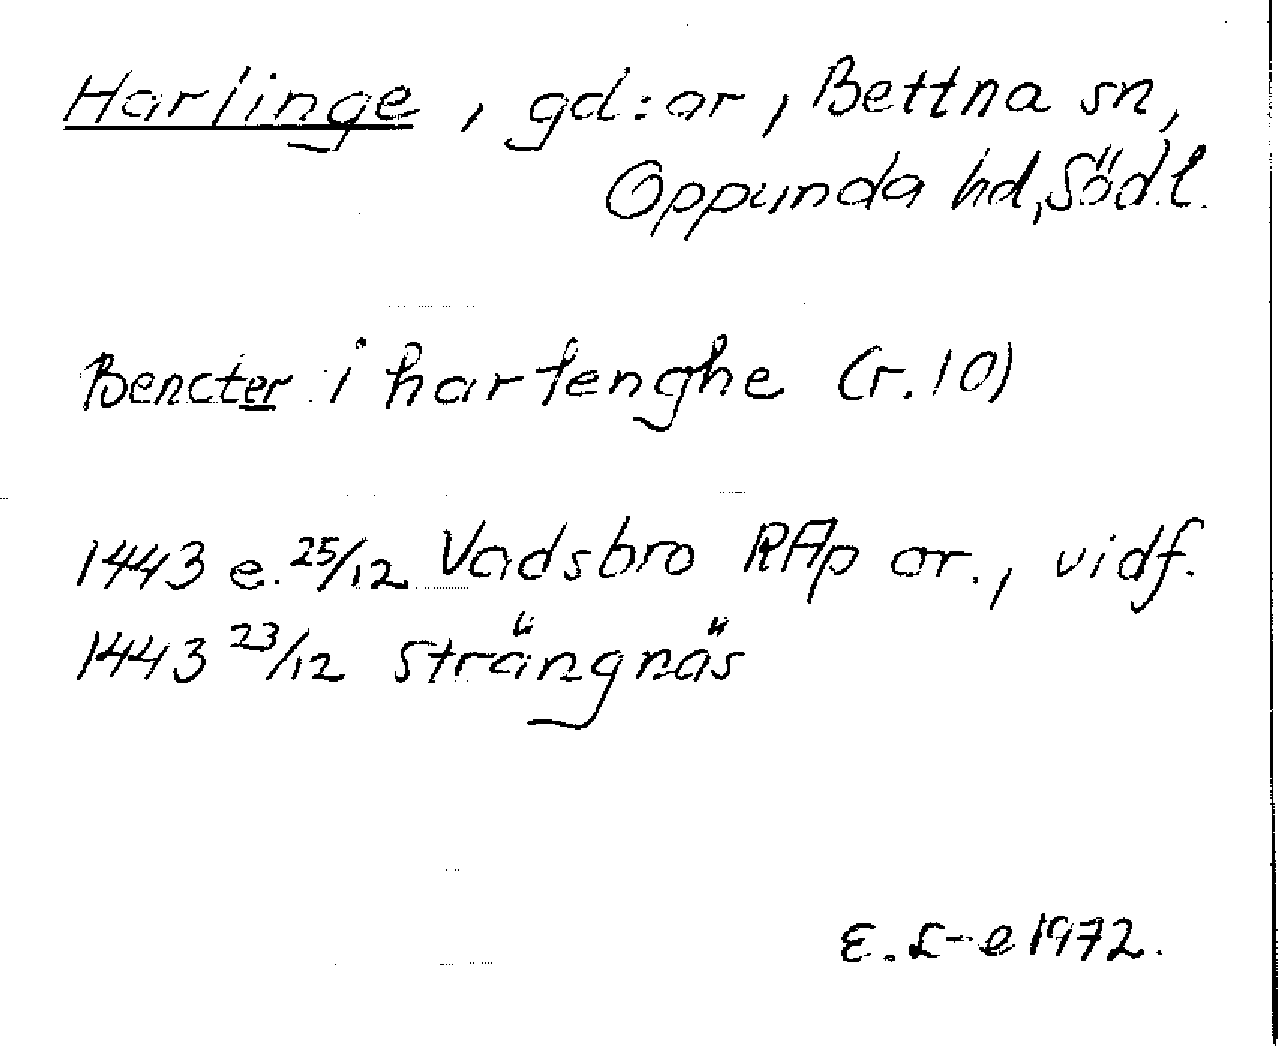 Harlinge, gd:ar, Bettna sn,
Oppunda hd, Södl.
Bencter i hartenghe (r. 10)
1443 e. 25/12 Vadsbro RAp or., vidf.
1443 23/12 Strängnäs
E. L-e 1972.